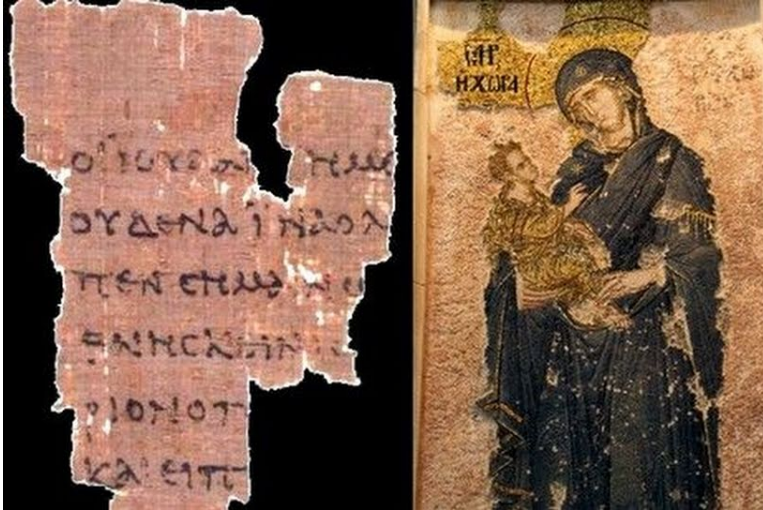 ΟΙ ΙΟΥΔΑΙ ΗΜΕ
ΟΥΔΕΝΑ ΙΝΑ Ο Λ
ΠΕΝ CΗΜΑΙΝΩ
ΘΝΗCΚΕΙΝ
ΡΙΟΝ Ο Π
ΚΑΙ ΕΙΠ
ΜΗΡ
Η ΧΩΡΑ